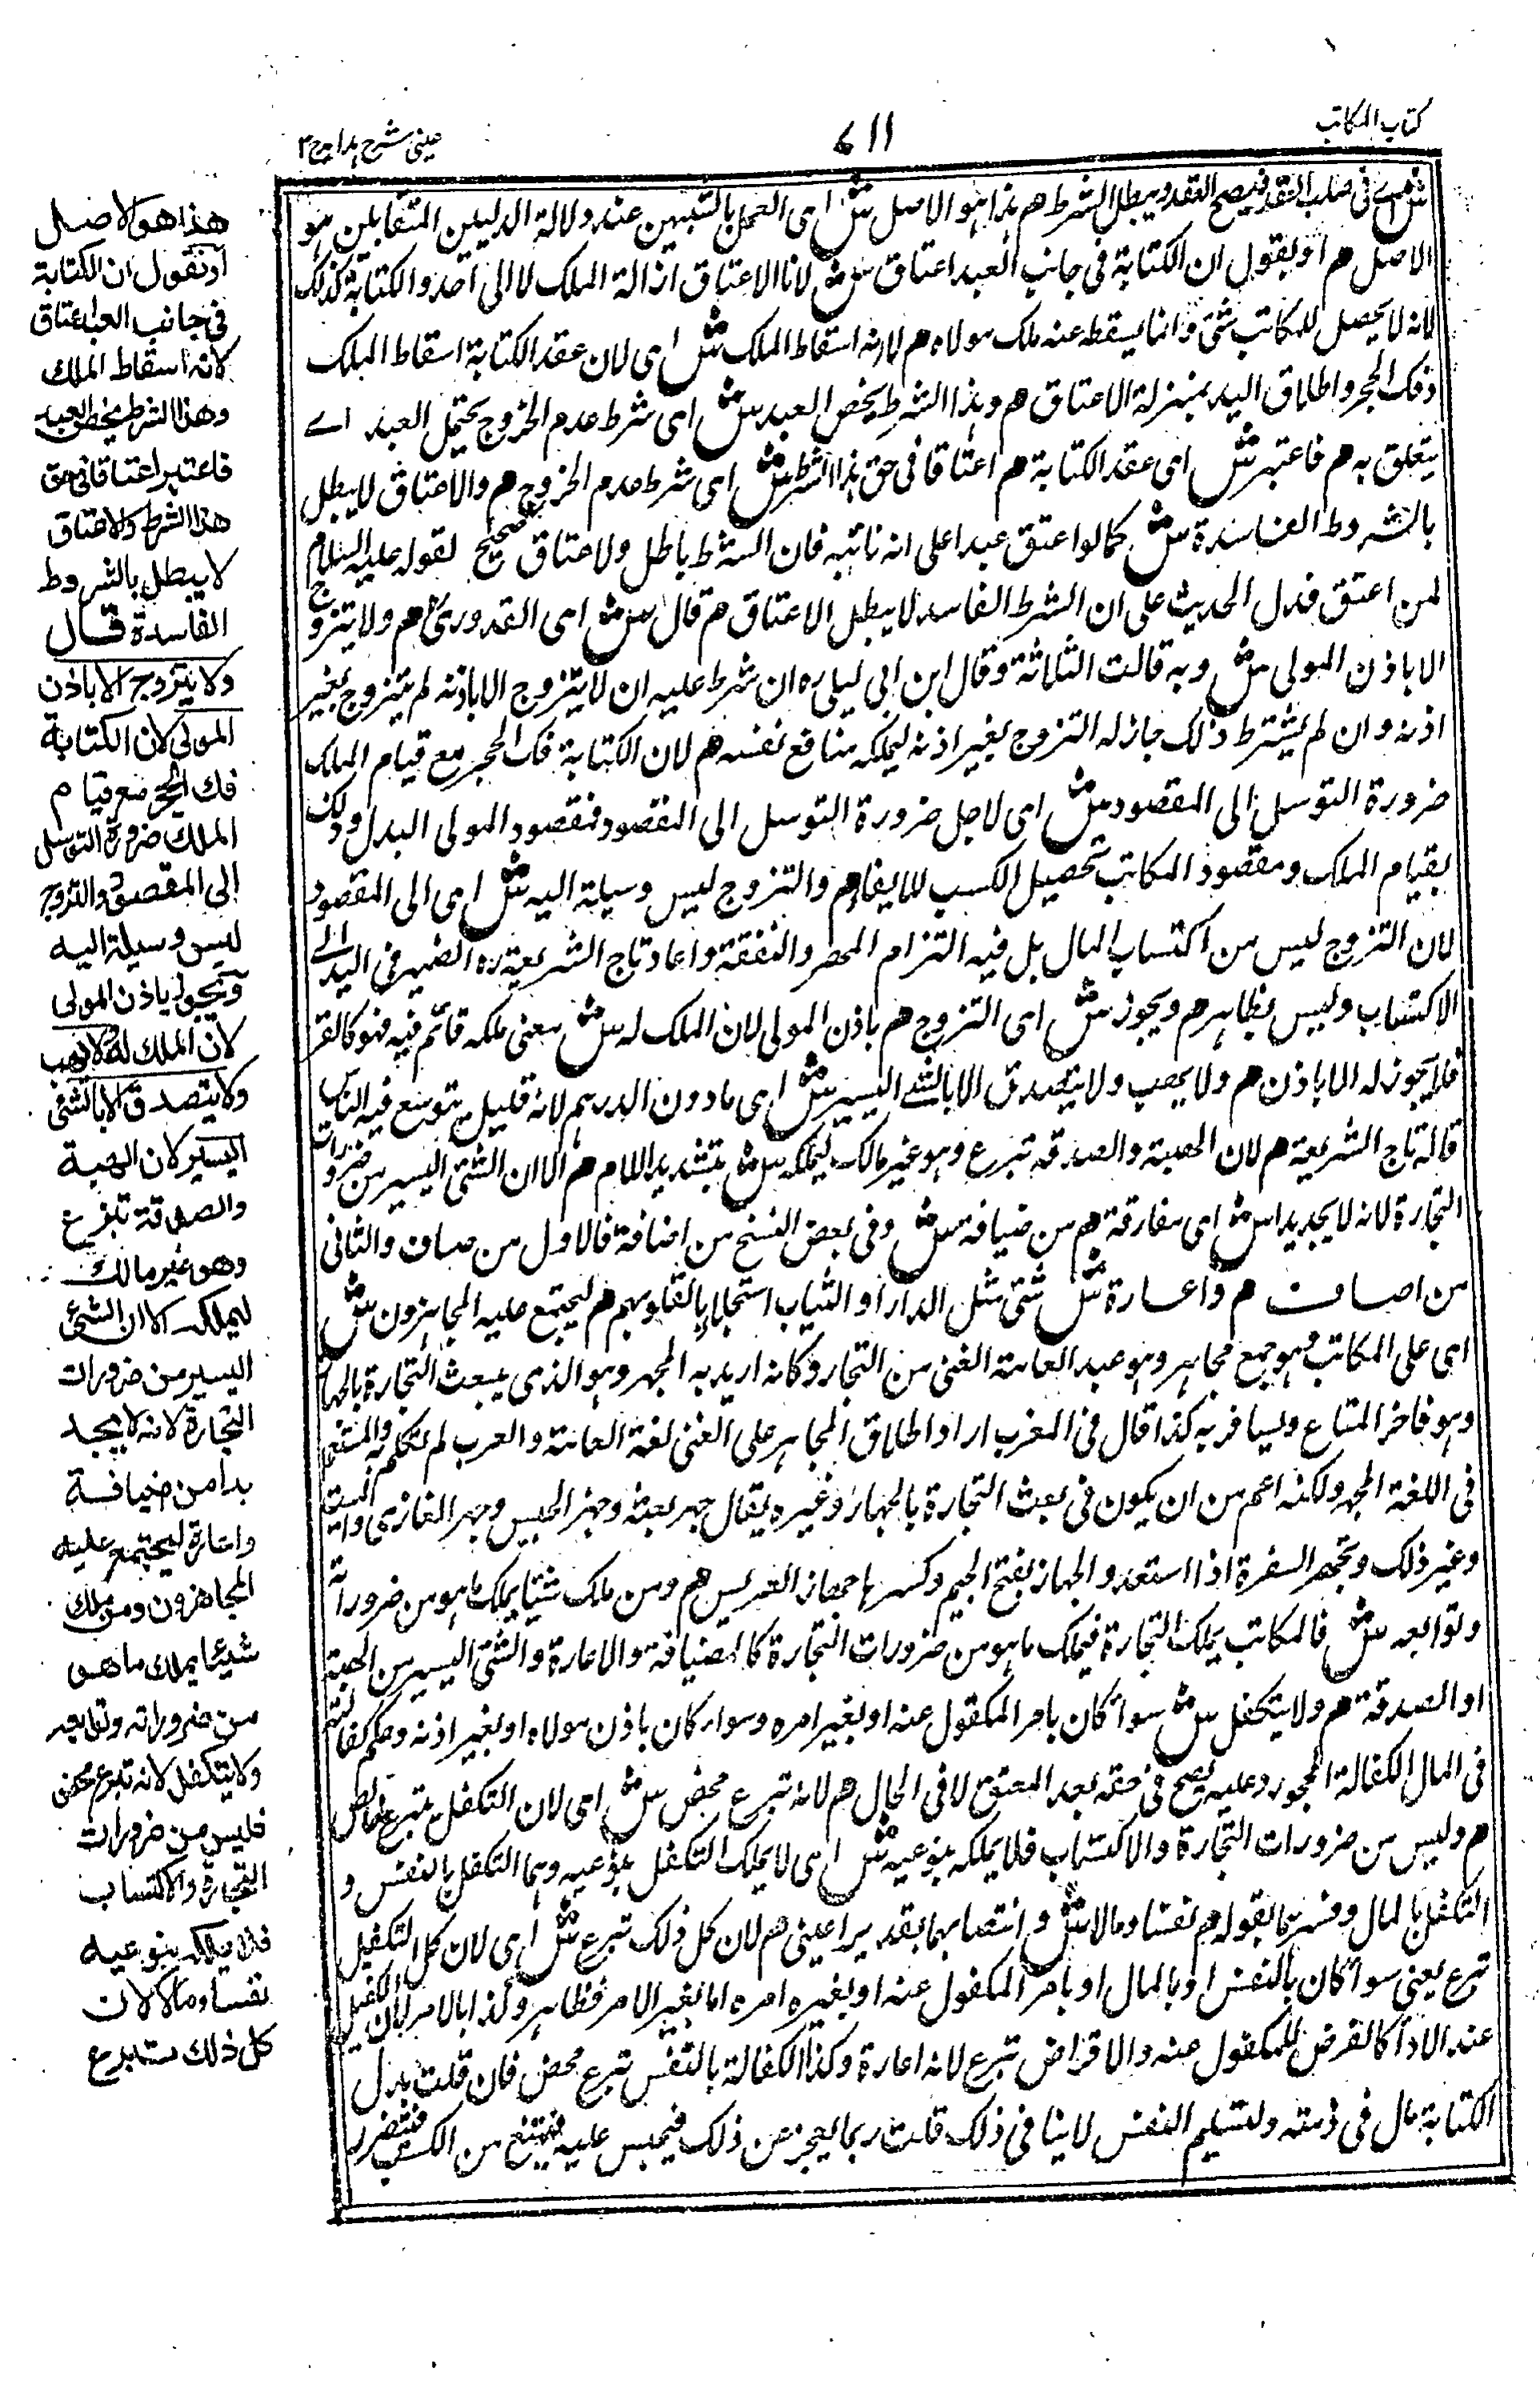 كتاب المكاتب
٧١١
عينى شرح هدايه ج٣
فى صلب العقد فيصح العقد ويبطل الشرط هم هذا هو الاصل ش اى العمل بالشبهين عند دلالة الدليلين المتقابلين هو
الاصل هم او يقول ان الكتابة فى جانب العبد اعتاق ش لان الاعتاق ازالة الملك لا الى احد والكتابة كذلك
لانه لا يحصل للمكاتب شئ وانما يسقط عنه ملك مولاه هم لانه اسقاط الملك ش اى لان عقد الكتابة اسقاط الملك
وفك الحجر واطلاق اليد بمنزلة الاعتاق هم وهذا الشرط يخص العبد ش اى شرط عدم الخروج يحتمل العبد اے
يتعلق به هم فاعتبر ش اى عقد الكتابة هم اعتاقا فى حق هذا الشرط ش اى شرط عدم الخروج هم والاعتاق لا يبطل
بالشروط الفاسدة ش كما لو اعتق عبدا على انه سائبه فان الشرط باطل ولاعتاق صحيح لقوله عليه السلام
لمن اعتق فدل الحديث على ان الشرط الفاسد لا يبطل الاعتاق هم قال ش اى القدورى هم ولا يتزوج
الا باذن المولى ش وبه قالت الثلاثة وقال ابن ابى ليلى ره ان شرط عليه ان لا يتزوج الا باذنه لم يتزوج بغير
اذنه وان لم يشترط ذلك جاز له التزوج بغير اذنه ليملكه منافع نفسه هم لان الكتابة فك الحجر مع قيام الملك
ضرورة التوسل الى المقصود ش اى لاجل ضرورة التوسل الى المقصود فمقصود المولى البدل وذلك
بقيام الملك ومقصود المكاتب تحصيل الكسب للايفاء هم والتزوج ليس وسيلة اليه ش اى الى المقصود
لان التزوج ليس من اكتساب المال بل فيه التزام المهر والنفقة واعاد تاج الشريعة ره الضمير فى اليه الى
الاكتساب وليس بظاهر هم ويجوز ش اى التزوج هم باذن المولى لان الملك له ش يعنى ملكه قائم فيه فهو كالقن
فلا يجوز له الا باذن هم ولا يهب ولا يتصدق الا بالشئ اليسير ش اى ما دون الدرهم لانه قليل يتوسع فيه الناس
قاله تاج الشريعة هم لان الهبة والصدقة تبرع وهو غير مالك ليملكه ش بتشديد اللام هم الا ان الشئ اليسير من ضرورات
التجارة لانه لا يجد بدا ش اى مفارقة هم من ضيافة ش وفى بعض النسخ من اضافة فالاول من ضاف والثانى
من اضاف هم واعارة ش شئ مثل الدار او الثياب استجلابا لقلوبهم هم ليجتمع عليه المجاهزون ش
اى على المكاتب وهو جمع مجاهز وهو عند العامة الغنى من التجار وكانه اريد به المجهز وهو الذى يبعث التجارة بالجهاز
وهو فاخر المتاع ويسافر به كذا قال فى المغرب اراد اطلاق المجاهز على الغنى لغة العامة والعرب لم تتكلم به والمستعمل
فى اللغة المجهز ولكنه اعم من ان يكون فى بعث التجارة بالجهاز وغيره يقال جهز بعثه وجهز الجيش وجهز الغازى والميت
وغير ذلك وتجهز السفرة اذا استعد والجهاز بفتح الجيم وكسرها جهاز العروس هم ومن ملك شيئا يملك ما هو من ضروراته
وتوابعه ش فالمكاتب يملك التجارة فيملك ما هو من ضرورات التجارة كالضيافة والاعارة والشئ اليسير من الهبة
او الصدقة هم ولا يتكفل ش سواء كان بامر المكفول عنه او بغير امره وسواء كان باذن مولاه او بغير اذنه وحكم كفالته
فى المال الكفالة المحجور عليه يصح فى حقه بعد العتق لا فى الحال هم لانه تبرع محض ش اى لان التكفل تبرع خالص
هم وليس من ضرورات التجارة والاكتساب فلا يملكه بنوعيه ش اى لا يملك التكفل بنوعيه وهما التكفل بالنفس و
التكفل بالمال وفسرهما بقوله هم نفسا ومالا ش وانتصابهما بتقدير اعينى هم لان كل ذلك تبرع ش اى لان كل التكفيل
تبرع يعنى سواء كان بالنفس او بالمال او بامر المكفول عنه او بغيره امره اما بغير الامر فظاهر وكذا بالامر لان الكفيل
عند الاداء كالقرض للمكفول عنه والاقراض تبرع لانه اعارة وكذا الكفالة بالنفس تبرع محض فان قلت بدل
الكتابة مال فى ذمته وتسليم النفس لا ينافى ذلك قلت ربما يعجز عن ذلك فيحبس عليه فيمتنع من الكسب فيتضرر
هذا هو الاصل
او نقول ان الكتابة
فى جانب العبد اعتاق
لانه اسقاط الملك
وهذا الشرط يخص العبد
فاعتبر اعتاقا فى حق
هذا الشرط والاعتاق
لا يبطل بالشروط
الفاسدة قال
ولا يتزوج الا باذن
المولى لان الكتابة
فك الحجر مع قيام
الملك ضرورة التوسل
الى المقصود والتزوج
ليس وسيلة اليه
ويجوز باذن المولى
لان الملك له ولا يهب
ولا يتصدق الا بالشئ
اليسير لان الهبة
والصدقة تبرع
وهو غير مالك
ليملكه الا ان الشئ
اليسير من ضرورات
التجارة لانه لا يجد
بدا من ضيافة
واعارة ليجتمع عليه
المجاهزون ومن ملك
شيئا يملك ما هو
من ضروراته وتوابعه
ولا يتكفل لانه تبرع محض
فليس من ضرورات
التجارة والاكتساب
فلا يملكه بنوعيه
نفسا ومالا لان
كل ذلك تبرع